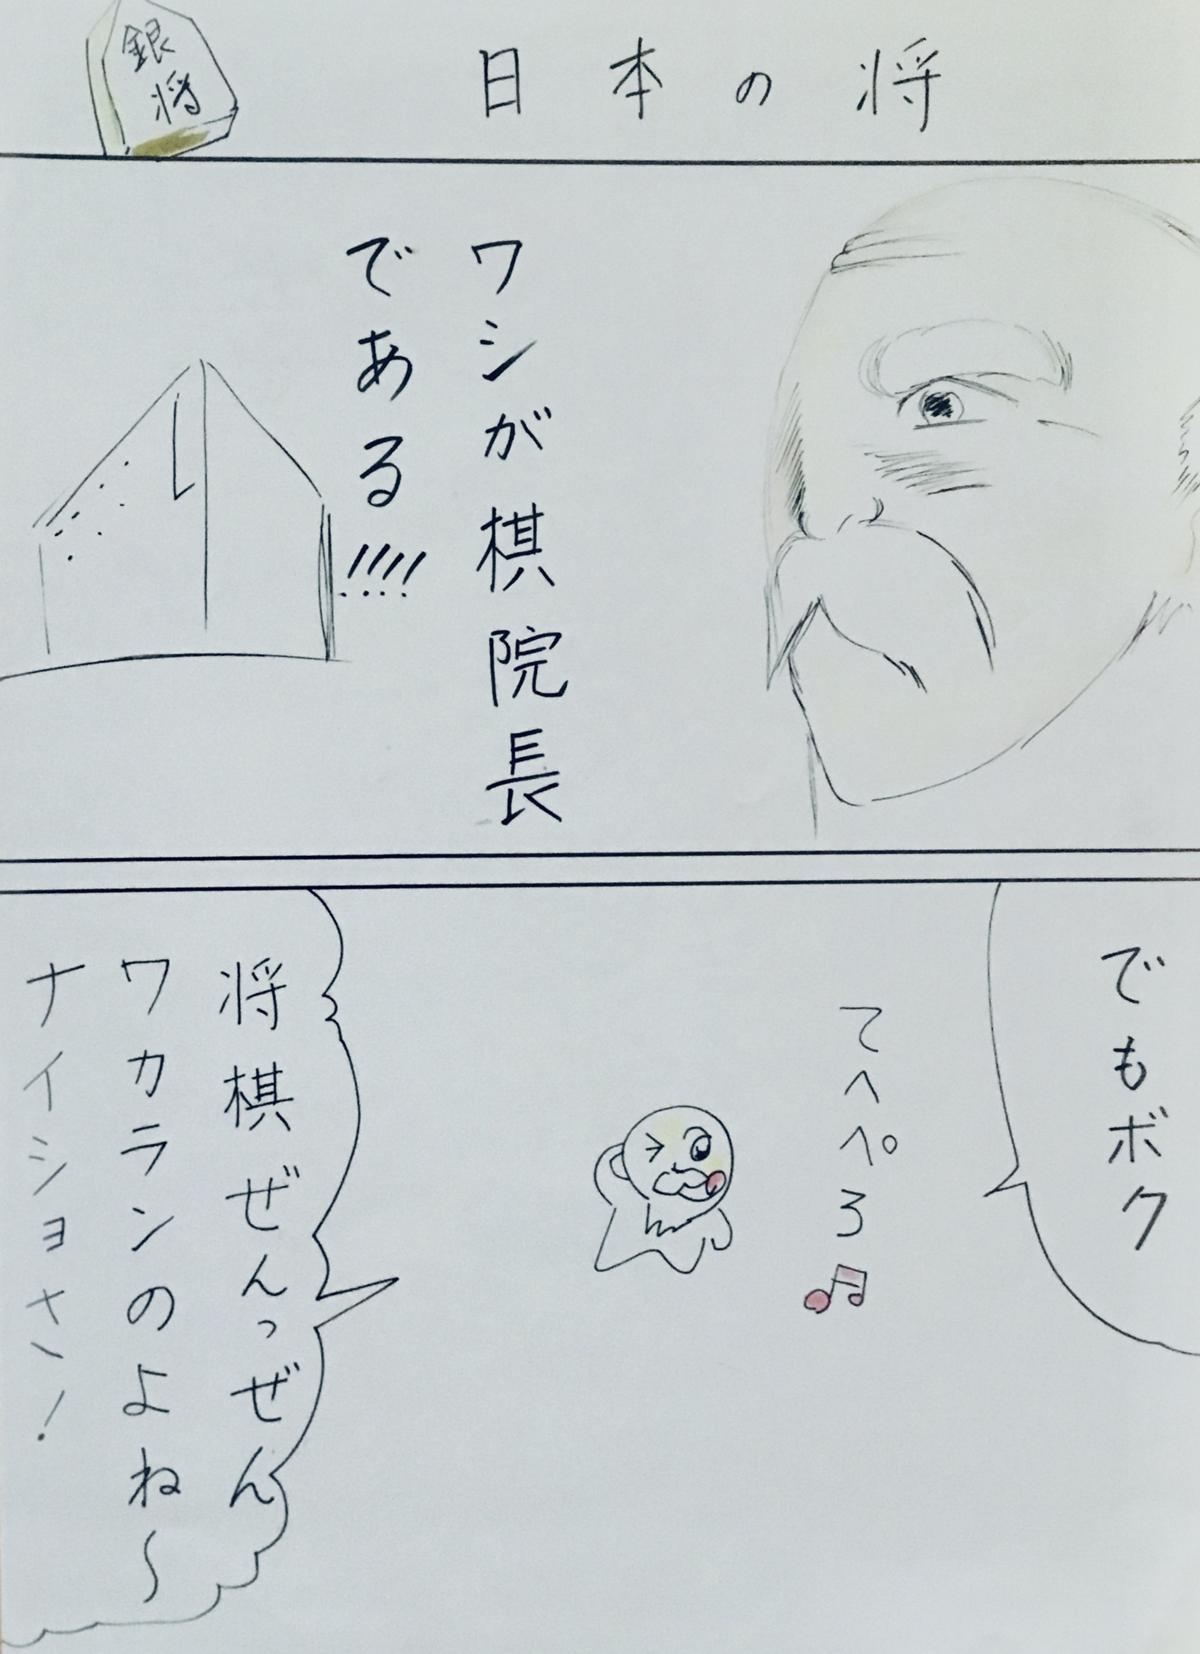 銀将
日本の将
ワシが棋院長
である!!!!
でもボク
てへぺろ♫
将棋ぜんっぜん
ワカランのよね〜
ナイショさ!